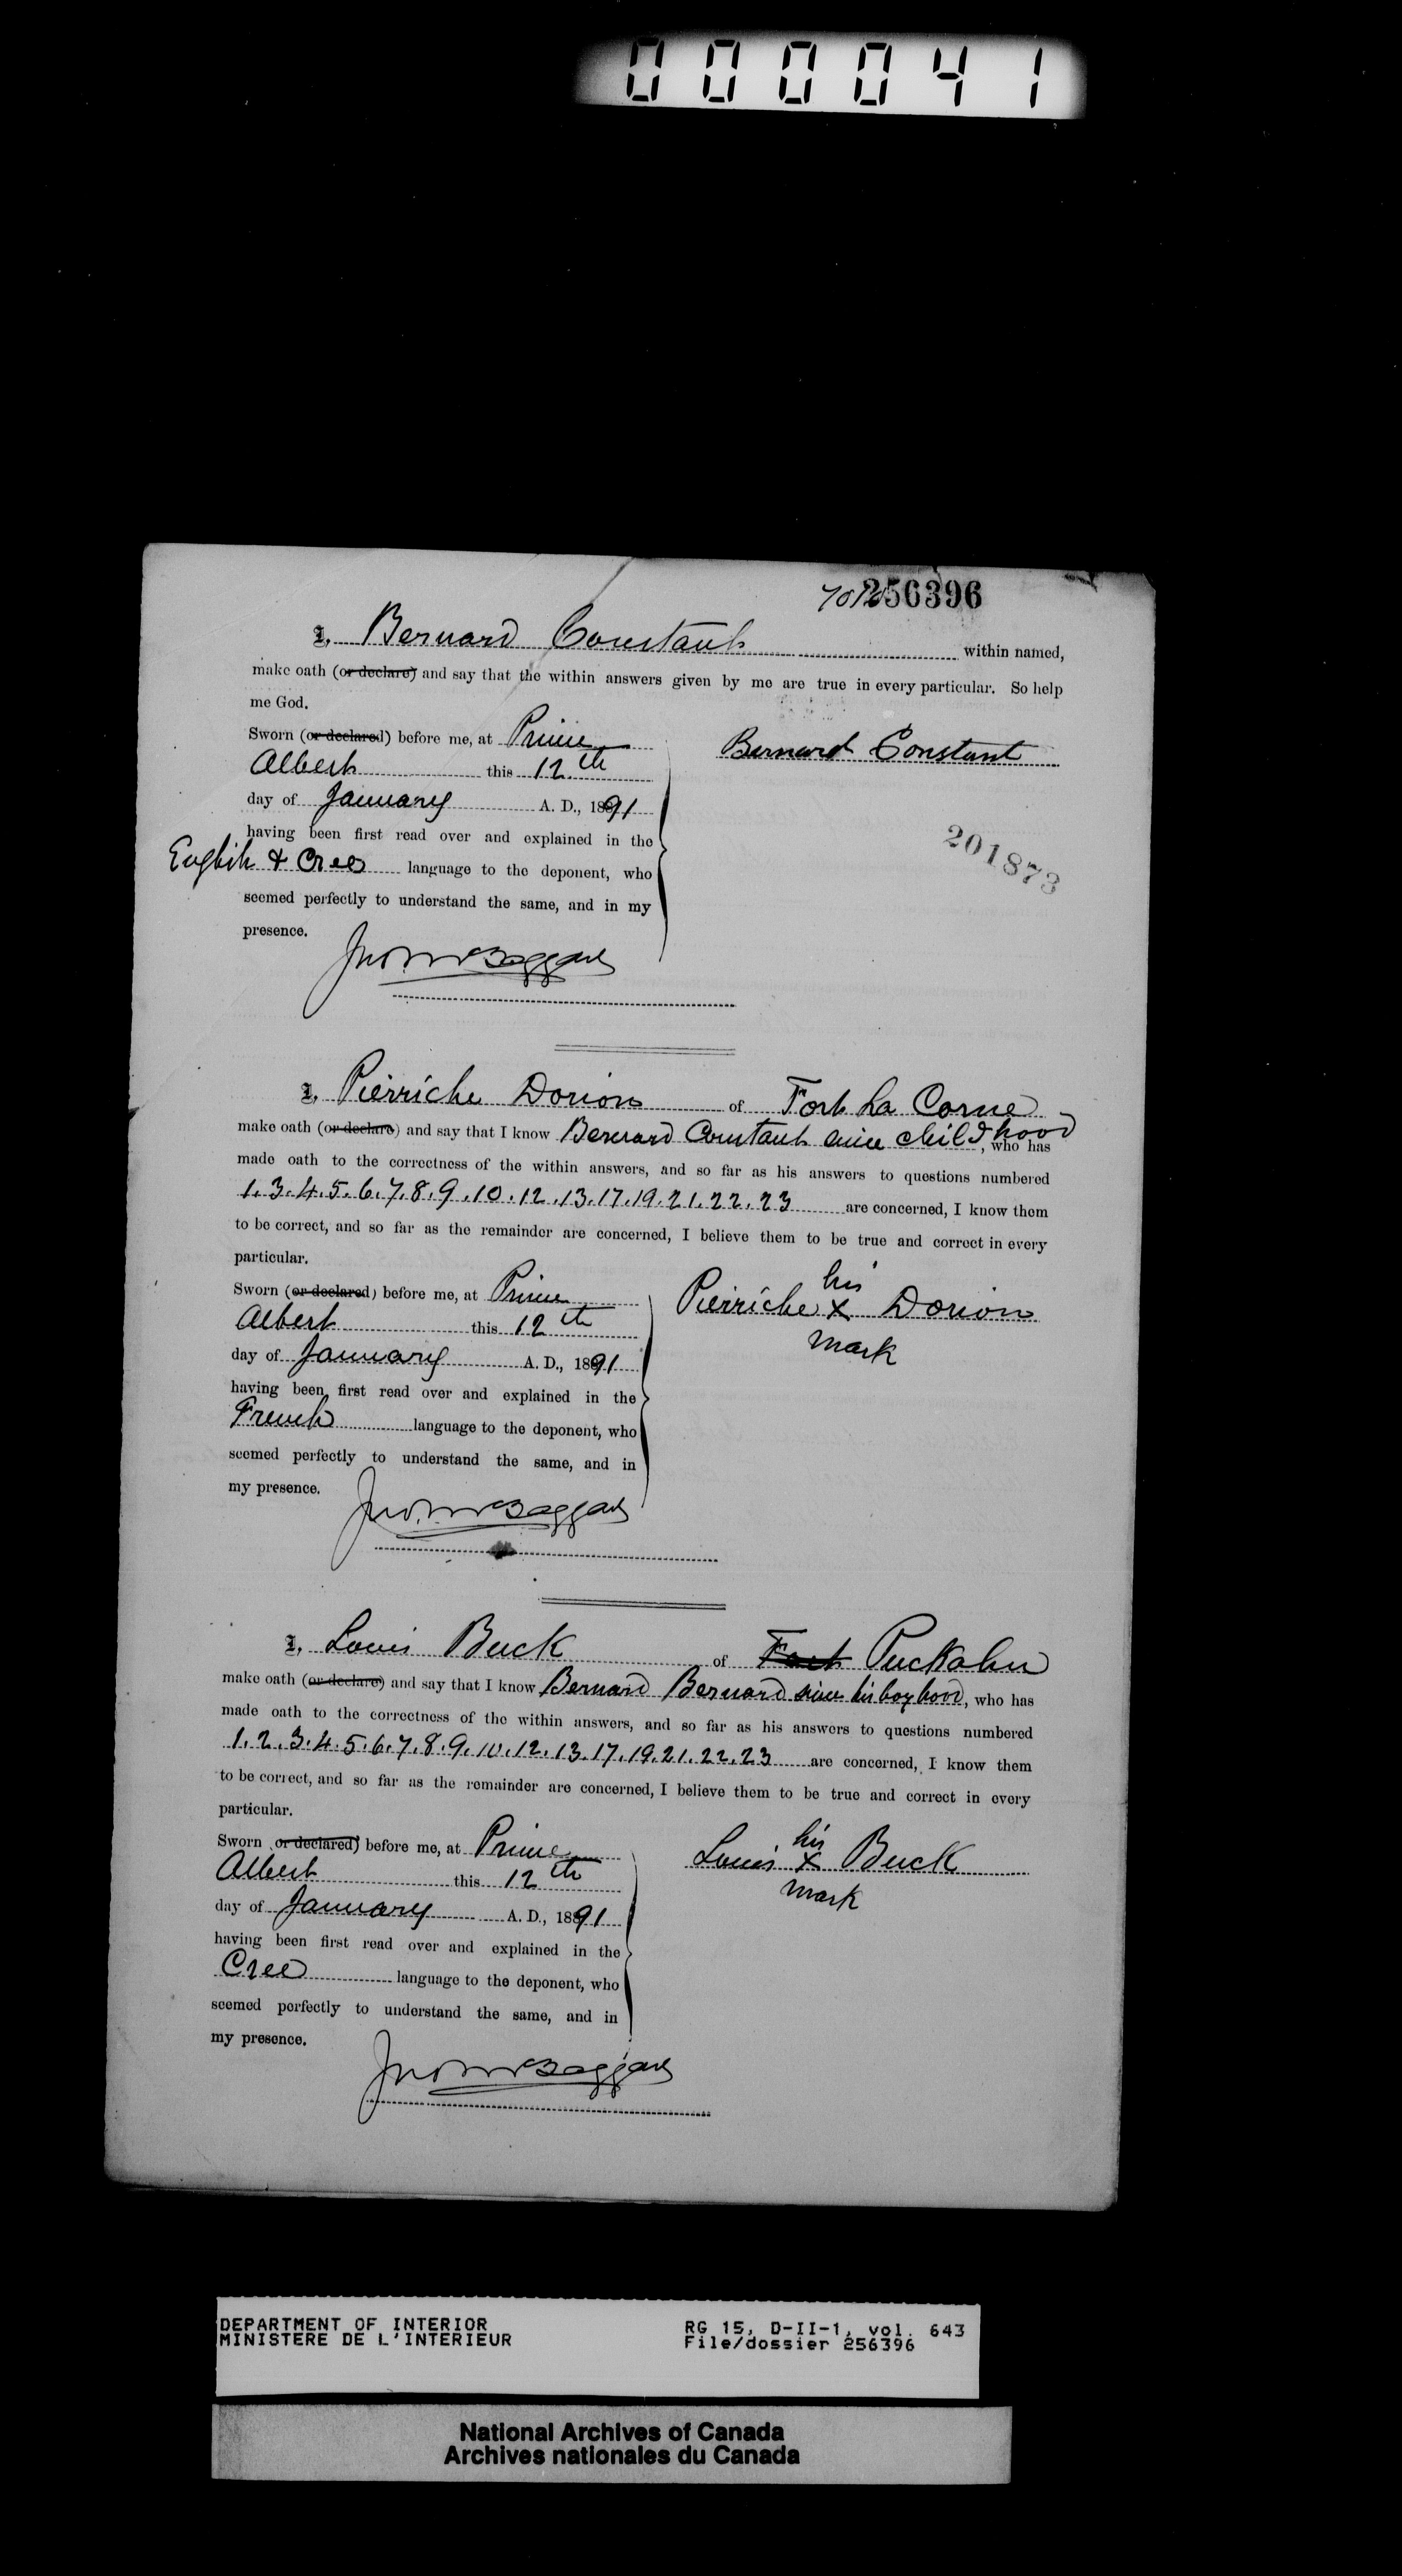 000041
256396
I, Bernard Constant within named,
make oath (or declare) and say that the within answers given by me are true in every particular. So help
me God.
Sworn (or declared) before me, at Prince
Albert this 12th
day of January A. D., 1891
having been first read over and explained in the
English & Cree language to the deponent, who
seemed perfectly to understand the same, and in my
presence.
Bernard Constant
201873
I, Pierriche Dorion of Fort La Corne
make oath (or declare) and say that I know Bernard Constant since childhood, who has
made oath to the correctness of the within answers, and so far as his answers to questions numbered
1.3.4.5.6.7.8.9.10.12.13.17.19.21.22.23 are concerned, I know them
to be correct, and so far as the remainder are concerned, I believe them to be true and correct in every
particular.
Sworn (or declared) before me, at Prince
Albert this 12th
day of January A. D., 1891
having been first read over and explained in the
French language to the deponent, who
seemed perfectly to understand the same, and in
my presence.
his
Pierriche X Dorion
mark
I, Louis Buck of Fort Puckahn
make oath (or declare) and say that I know Bernard Bernard since his boyhood, who has
made oath to the correctness of the within answers, and so far as his answers to questions numbered
1.2.3.4.5.6.7.8.9.10.12.13.17.19.21.22.23 are concerned, I know them
to be correct, and so far as the remainder are concerned, I believe them to be true and correct in every
particular.
Sworn or declared) before me, at Prince
Albert this 12th
day of January A. D., 1891
having been first read over and explained in the
Cree language to the deponent, who
seemed perfectly to understand the same, and in
my presence.
his
Louis X Buck
mark
DEPARTMENT OF INTERIOR
MINISTERE DE L'INTERIEUR
RG 15, D-II-1, vol. 643
File/dossier 256396
National Archives of Canada
Archives nationales du Canada